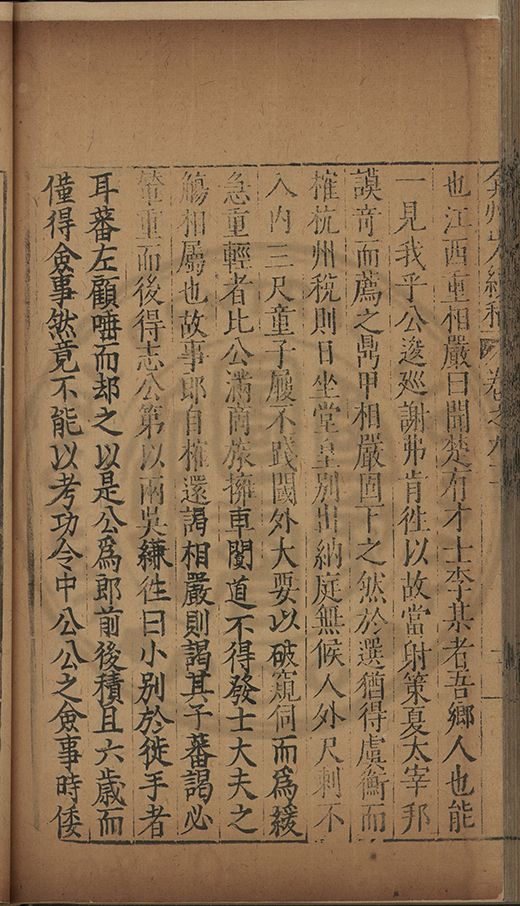 弇州山人續稿 卷之九二
也江西重相嚴曰聞楚有才士李某者吾鄉人也能
一見我乎公逡廵謝弗肯徃以故當射策夏太宰邦
謨竒而薦之鼎甲相嚴固下之然於選猶得虞衡而
榷杭州稅則日坐堂皇別出納庭無候人外尺剌不
入内三尺童子履不踐閾外大要以破窺伺而爲緩
急重輕者比公滿商旅擁車闐道不得發士大夫之
觴相屬也故事郎自榷還謁相嚴則謁其子蕃謁必
贄重而後得志公第以兩吳縑徃曰小別於徒手者
耳蕃左顧唾而却之以是公爲郎前後積且六歳而
僅得僉事然竟不能以考功令中公公之僉事時倭